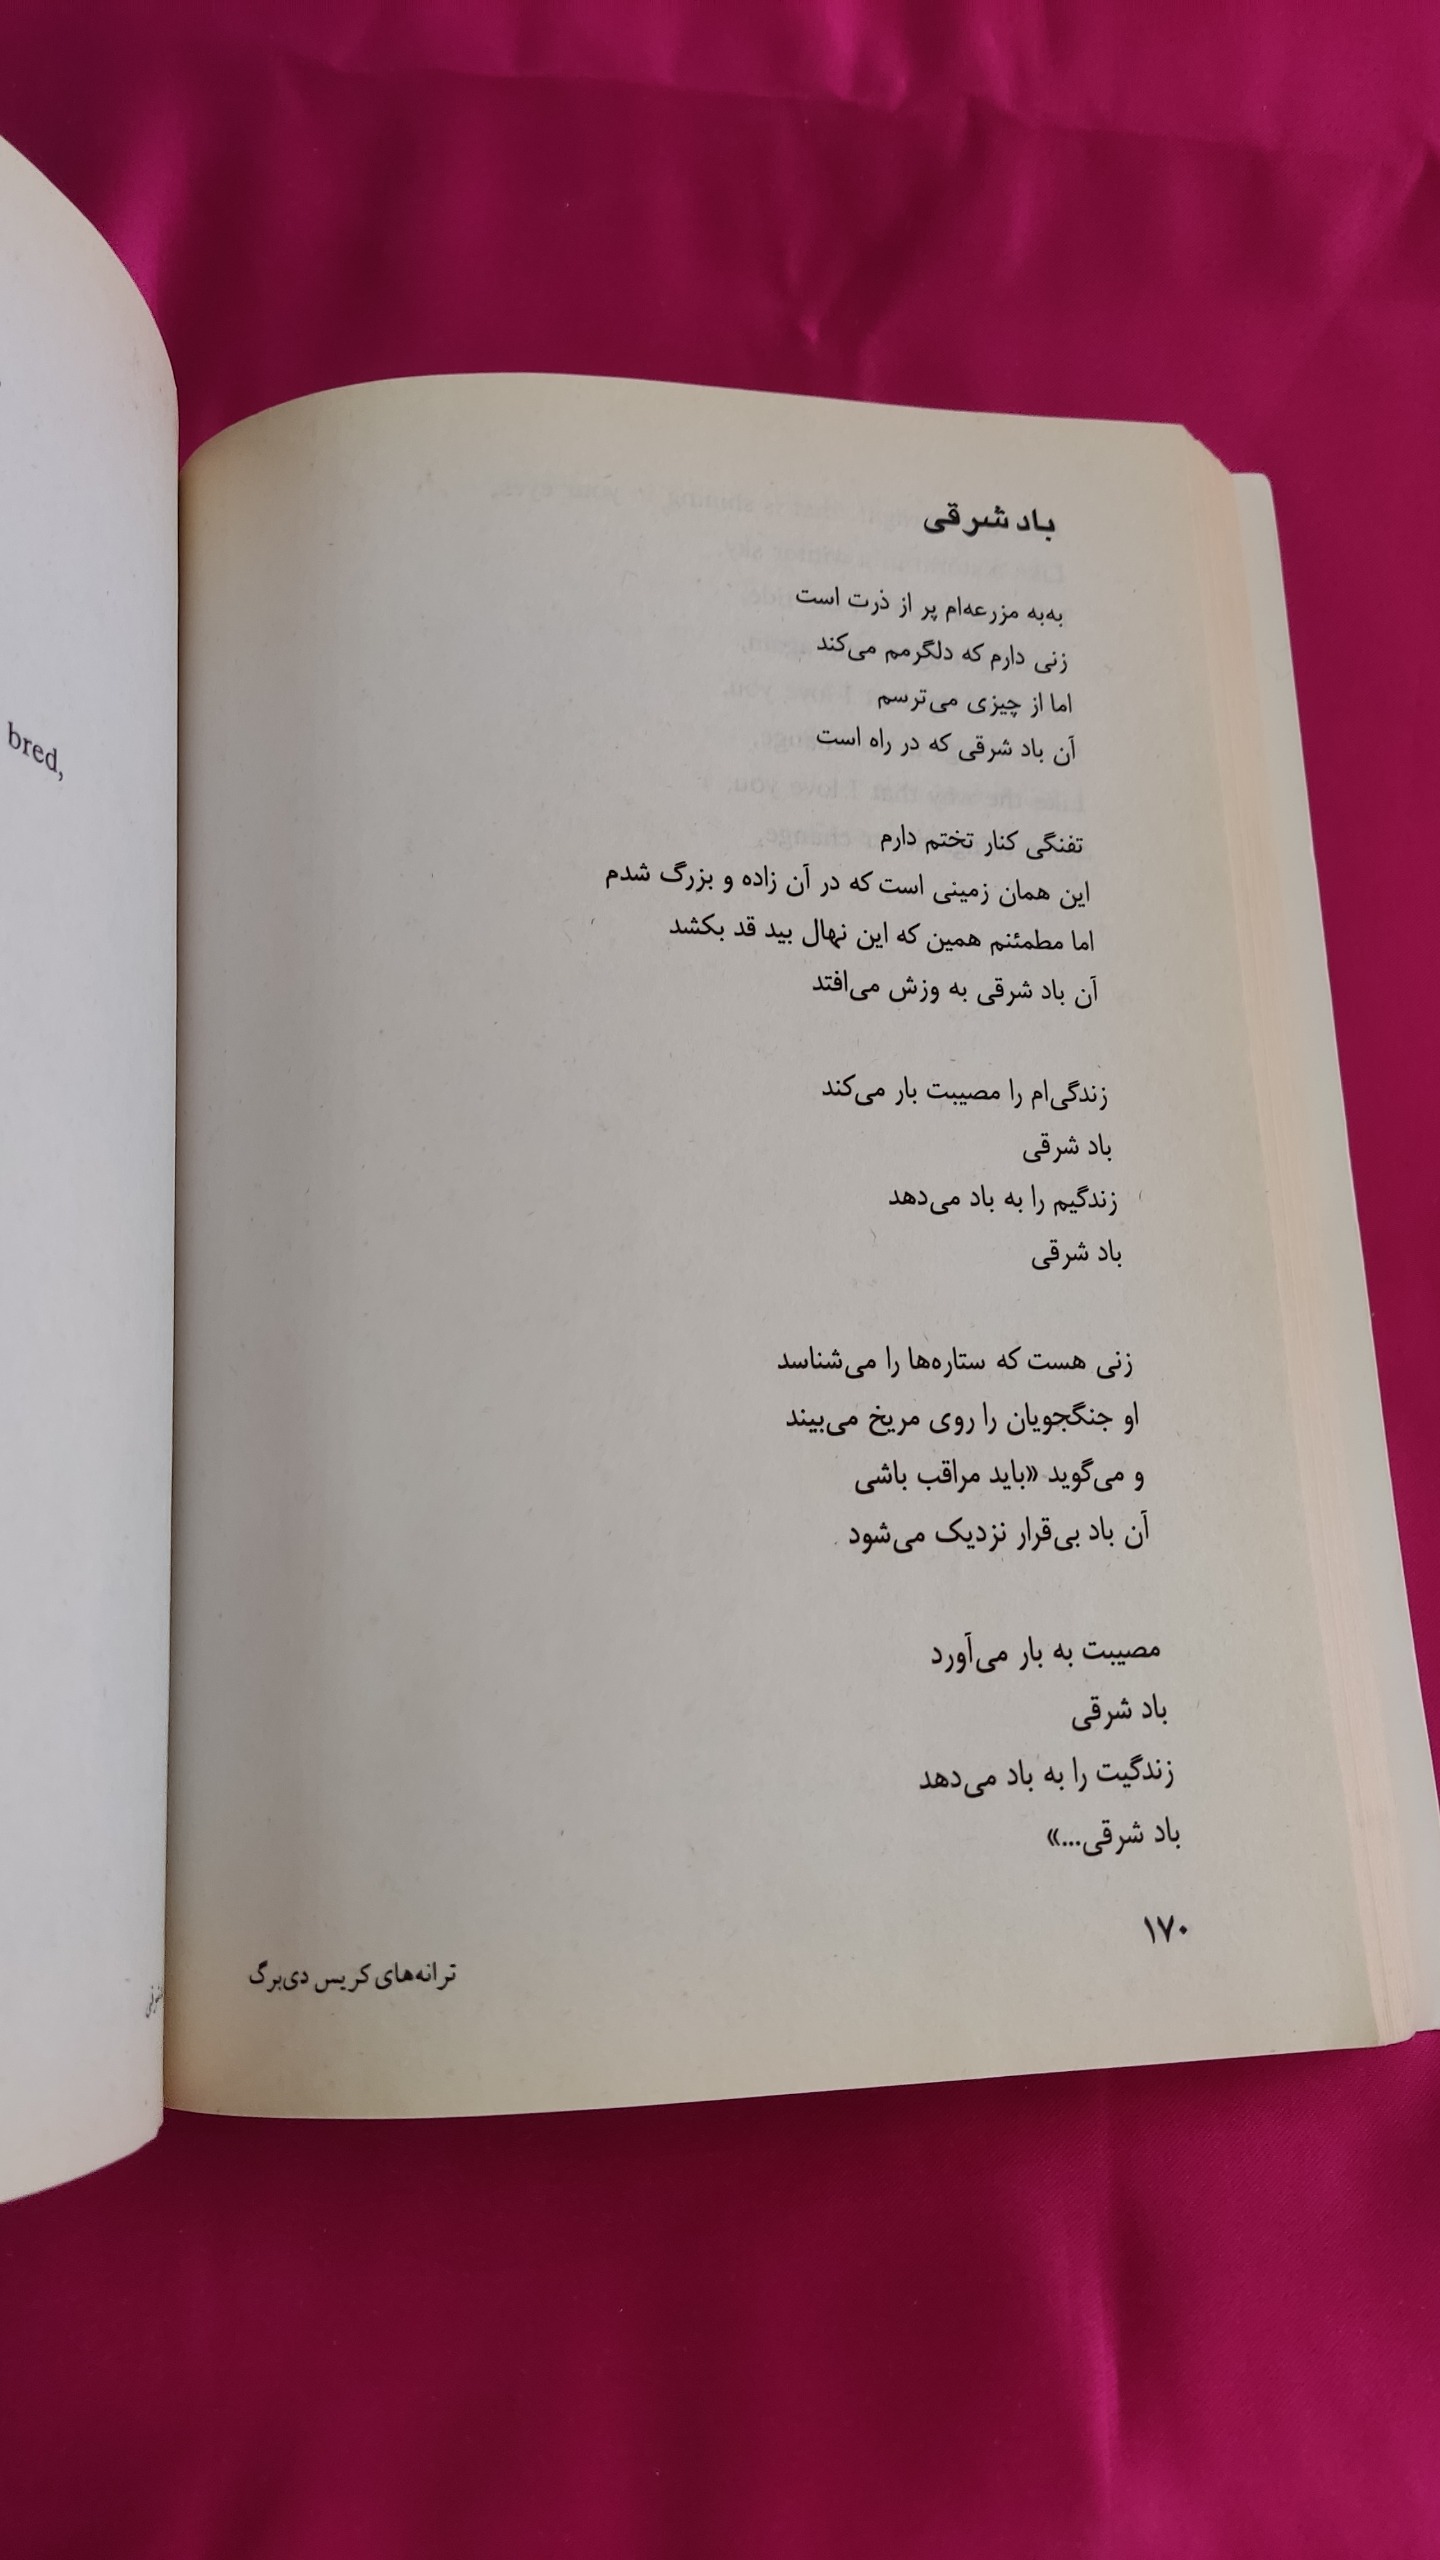 bred,
باد شرقی
به‌به مزرعه‌ام پر از ذرت است
زنی دارم که دلگرمم می‌کند
اما از چیزی می‌ترسم
آن باد شرقی که در راه است
تفنگی کنار تختم دارم
این همان زمینی است که در آن زاده و بزرگ شدم
اما مطمئنم همین که این نهال بید قد بکشد
آن باد شرقی به وزش می‌افتد
زندگی‌ام را مصیبت بار می‌کند
باد شرقی
زندگیم را به باد می‌دهد
باد شرقی
زنی هست که ستاره‌ها را می‌شناسد
او جنگجویان را روی مریخ می‌بیند
و می‌گوید «باید مراقب باشی
آن باد بی‌قرار نزدیک می‌شود
مصیبت به بار می‌آورد
باد شرقی
زندگیت را به باد می‌دهد
باد شرقی...»
۱۷۰
ترانه‌های کریس دی‌برگ